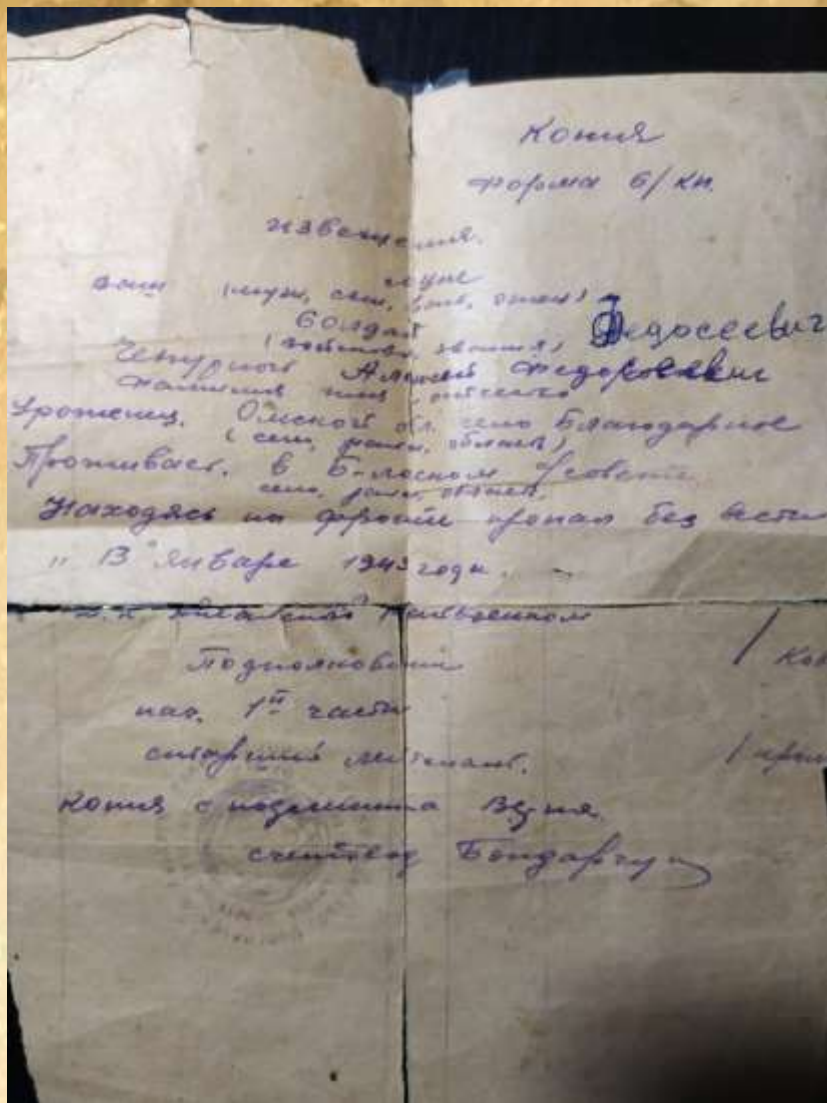 Копия
Форма б/кн.
извещения.
ваш (муж, сын, брат, отец) муж
Солдат
(воинское звание) Федосеевич
Чепурной Алексей Федорович
фамилия имя отчество
Уроженец. Омской обл. село Благодарное
(село, район, область)
Проживает. в
село, район, область.
Находясь на фронте пропал без вести
"13" Январе 1943 года.
Подполковник
нач. 1й части
старший лейтенант.
Копия с подлинника Верна
счетовод Бондарчук